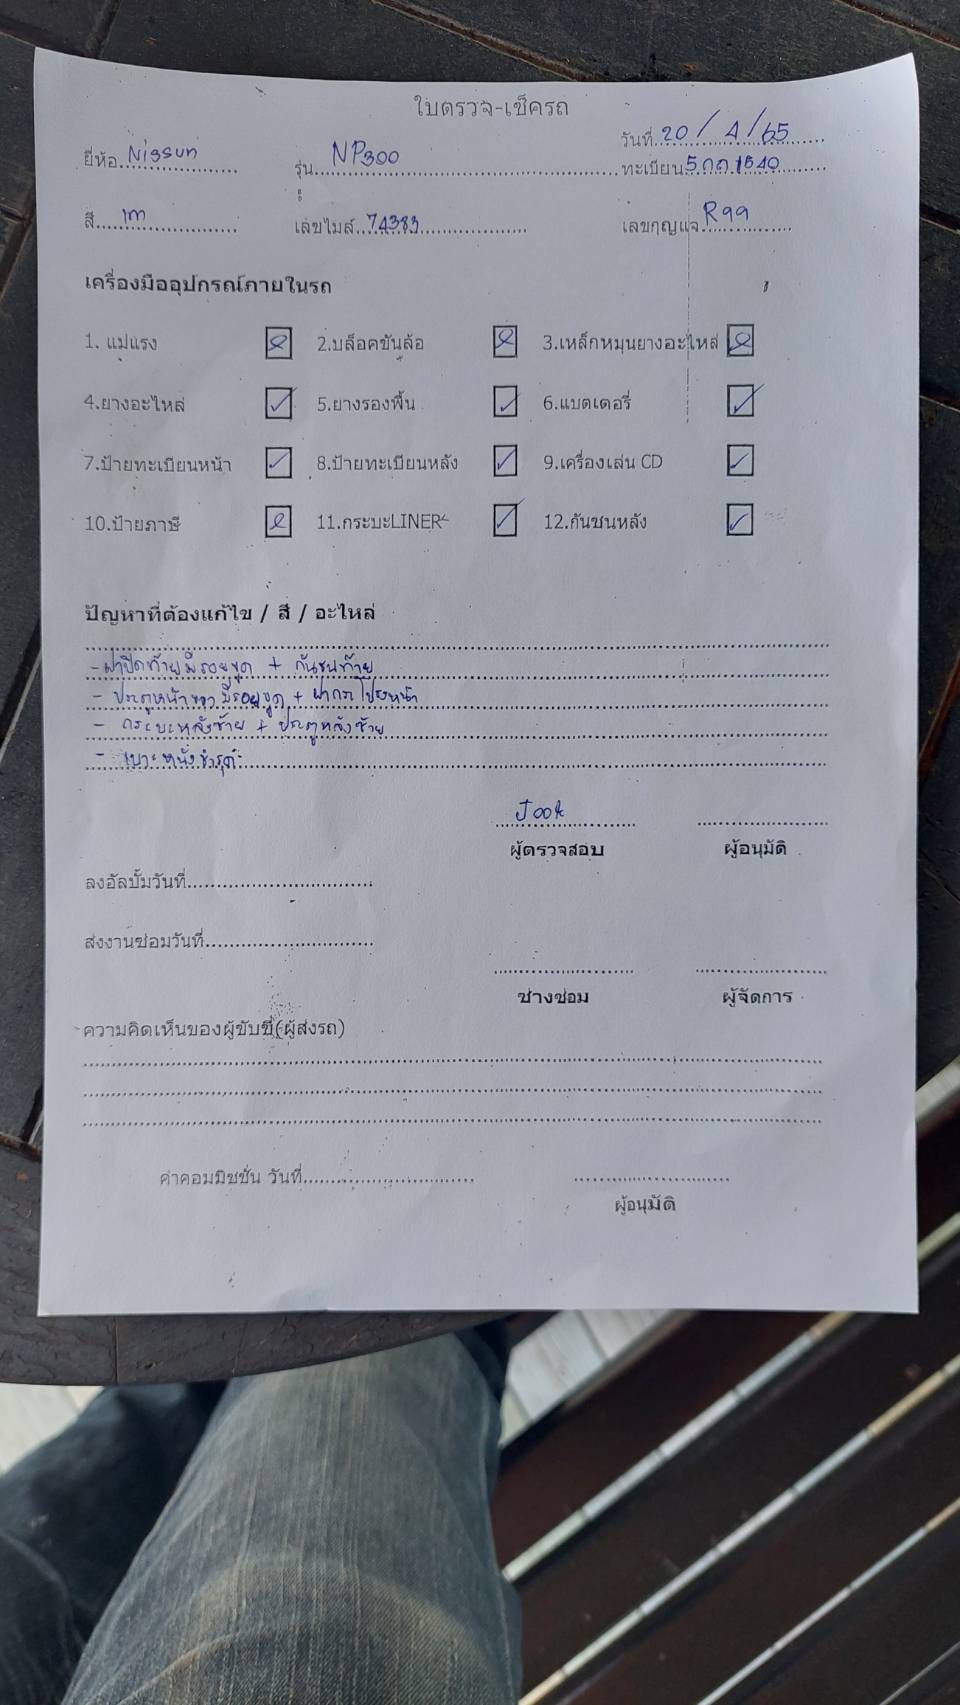 ใบตรวจ-เช็ครถ
วันที่ 20 / 4 / 65
ยี่ห้อ Nissun รุ่น NP300 ทะเบียน 5กก1540
สี เทา เลขไมล์ 74383 เลขกุญแจ R99
เครื่องมืออุปกรณ์ภายในรถ
1. แม่แรง 2.บล็อคขันล้อ 3.เหล็กหมุนยางอะไหล่
4.ยางอะไหล่ 5.ยางรองพื้น 6.แบตเตอรี่
7.ป้ายทะเบียนหน้า 8.ป้ายทะเบียนหลัง 9.เครื่องเล่น CD
10.ป้ายภาษี 11.กระบะLINER 12.กันชนหลัง
ปัญหาที่ต้องแก้ไข / สี / อะไหล่
- ฝาปิดท้ายมีรอยขูด + กันชนท้าย
- ประตูหน้าขวามีรอยขูด + ฝากระโปรงหน้า
- กระบะหลังซ้าย + ประตูหลังซ้าย
- เบาะหนังชำรุด
Jook
ผู้ตรวจสอบ ผู้อนุมัติ
ลงอัลบั้มวันที่
ส่งงานซ่อมวันที่
ช่างซ่อม ผู้จัดการ
ความคิดเห็นของผู้ขับขี่(ผู้ส่งรถ)
ค่าคอมมิชชั่น วันที่
ผู้อนุมัติ